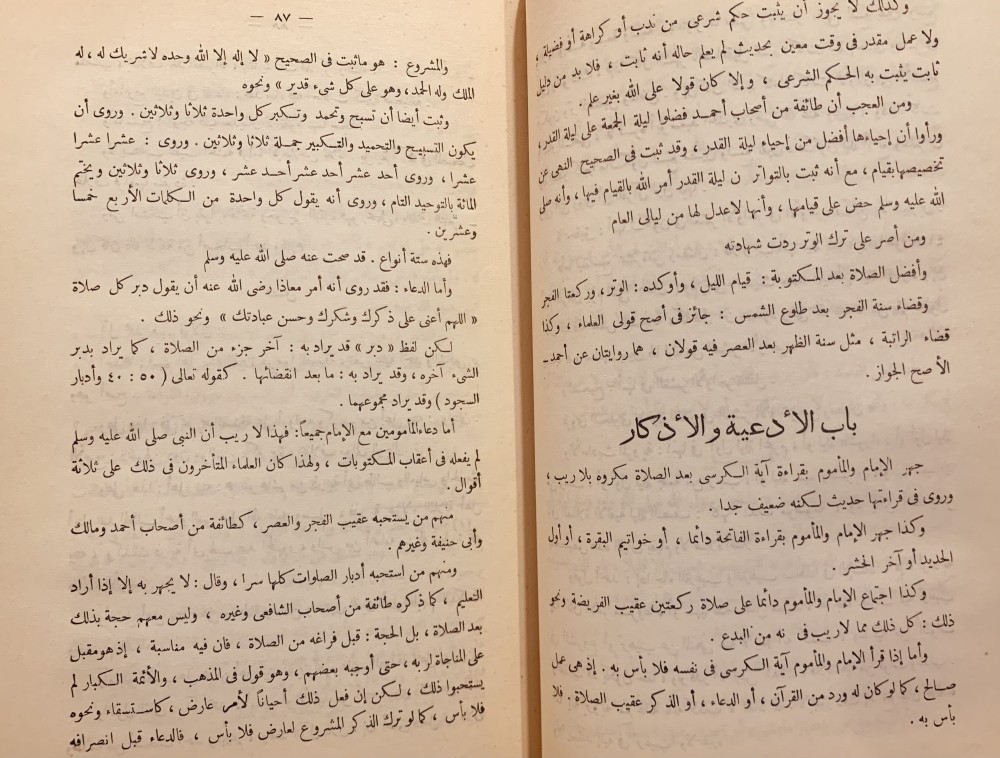 وكذلك لا يجوز أن يثبت حكم شرعى من ندب أو كراهة أو فضيلة ،
ولا عمل مقدر فى وقت معين بحديث لم يعلم حاله أنه ثابت ، فلا بد من دليل
ثابت يثبت به الحكم الشرعى ، وإلا كان قولا على الله بغير علم .
ومن العجب أن طائفة من أصحاب أحمد فضلوا ليلة الجمعة على ليلة القدر ،
ورأوا أن إحياءها أفضل من إحياء ليلة القدر ، وقد ثبت فى الصحيح النهى عن
تخصيصها بقيام ، مع أنه ثبت بالتواتر ن ليلة القدر أمر الله بالقيام فيها ، وأنه صلى
الله عليه وسلم حض على قيامها ، وأنها لاعدل لها من ليالى العام
ومن أصر على ترك الوتر ردت شهادته
وأفضل الصلاة بعد المكتوبة : قيام الليل ، وأوكده : الوتر ، وركعتا الفجر
وقضاء سنة الفجر بعد طلوع الشمس : جائز فى أصح قولى العلماء ، وكذا
قضاء الراتبة ، مثل سنة الظهر بعد العصر فيه قولان ، هما روايتان عن أحمد ـ
الأصح الجواز .
باب الأدعية والأذكار
جهر الإمام والمأموم بقراءة آية الكرسى بعد الصلاة مكروه بلا ريب ،
وروى فى قراءتها حديث لكنه ضعيف جدا .
وكذا جهر الإمام والمأموم بقراءة الفاتحة دائما ، أو خواتيم البقرة ، أو أول
الحديد أو آخر الحشر .
وكذا اجتماع الإمام والمأموم دائما على صلاة ركعتين عقيب الفريضة ونحو
ذلك : كل ذلك مما لاريب فى نه من البدع .
وأما إذا قرأ الإمام والمأموم آية الكرسى فى نفسه فلا بأس به . إذ هى عمل
صالح ، كما لو كان له ورد من القرآن ، أو الدعاء ، أو الذكر عقيب الصلاة . فلا
بأس به .
— ٨٧ —
والمشروع : هو ماثبت فى الصحيح « لا إله إلا الله وحده لاشريك له ، له
الملك وله الحمد ، وهو على كل شىء قدير » ونحوه
وثبت أيضا أن تسبح وتحمد وتكبر كل واحدة ثلاثا وثلاثين . وروى أن
يكون التسبيح والتحميد والتكبير جملة ثلاثا وثلاثين . وروى : عشرا عشرا
عشرا ، وروى أحد عشر أحد عشر أحد عشر ، وروى ثلاثا وثلاثين ويختم
المائة بالتوحيد التام ، وروى أنه يقول كل واحدة من الكلمات الأربع خمسا
وعشرين .
فهذه ستة أنواع . قد صحت عنه صلى الله عليه وسلم
وأما الدعاء : فقد روى أنه أمر معاذا رضى الله عنه أن يقول دبر كل صلاة
« اللهم أعنى على ذكرك وشكرك وحسن عبادتك » ونحو ذلك .
لكن لفظ « دبر » قد يراد به : آخر جزء من الصلاة ، كما يراد بدبر
الشىء آخره ، وقد يراد به : ما بعد انقضائها . كقوله تعالى ( ٥٠ : ٤٠ وأدبار
السجود ) وقد يراد مجموعهما .
أما دعاء المأمومين مع الإمام جميعاً : فهذا لا ريب أن النبى صلى الله عليه وسلم
لم يفعله فى أعقاب المكتوبات ، ولهذا كان العلماء المتأخرون فى ذلك على ثلاثة
أقوال .
منهم من يستحبه عقيب الفجر والعصر ، كطائفة من أصحاب أحمد ومالك
وأبى حنيفة وغيرهم .
ومنهم من استحبه أدبار الصلوات كلها سرا ، وقال : لا يجهر به إلا إذا أراد
التعليم ، كما ذكره طائفة من أصحاب الشافعى وغيره ، وليس معهم حجة بذلك
بعد الصلاة ، بل الحجة : قبل فراغه من الصلاة ، فان فيه مناسبة ، إذ هو مقبل
على المناجاة لربه ، حتى أوجبه بعضهم ، وهو قول فى المذهب ، والأئمة الكبار لم
يستحبوا ذلك ، لكن إن فعل ذلك أحياناً لأمر عارض ، كاستسقاء ونحوه
فلا بأس ، كما لو ترك الذكر المشروع لعارض فلا بأس ، فالدعاء قبل انصرافه